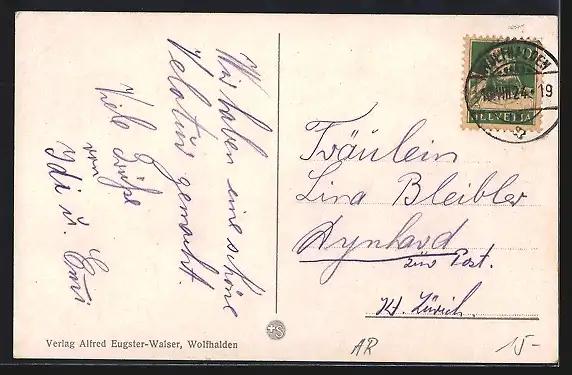 Wir haben eine schöne
Velotur gemacht.
Viele Grüße
von
Idi u. Emi
Fräulein
Lina Bleibler
Aynhard
zur Post.
Kt. Zürich.
HELVETIA
WOLFHALDEN
VIII.24.-19
Verlag Alfred Eugster-Walser, Wolfhalden
AR
15-